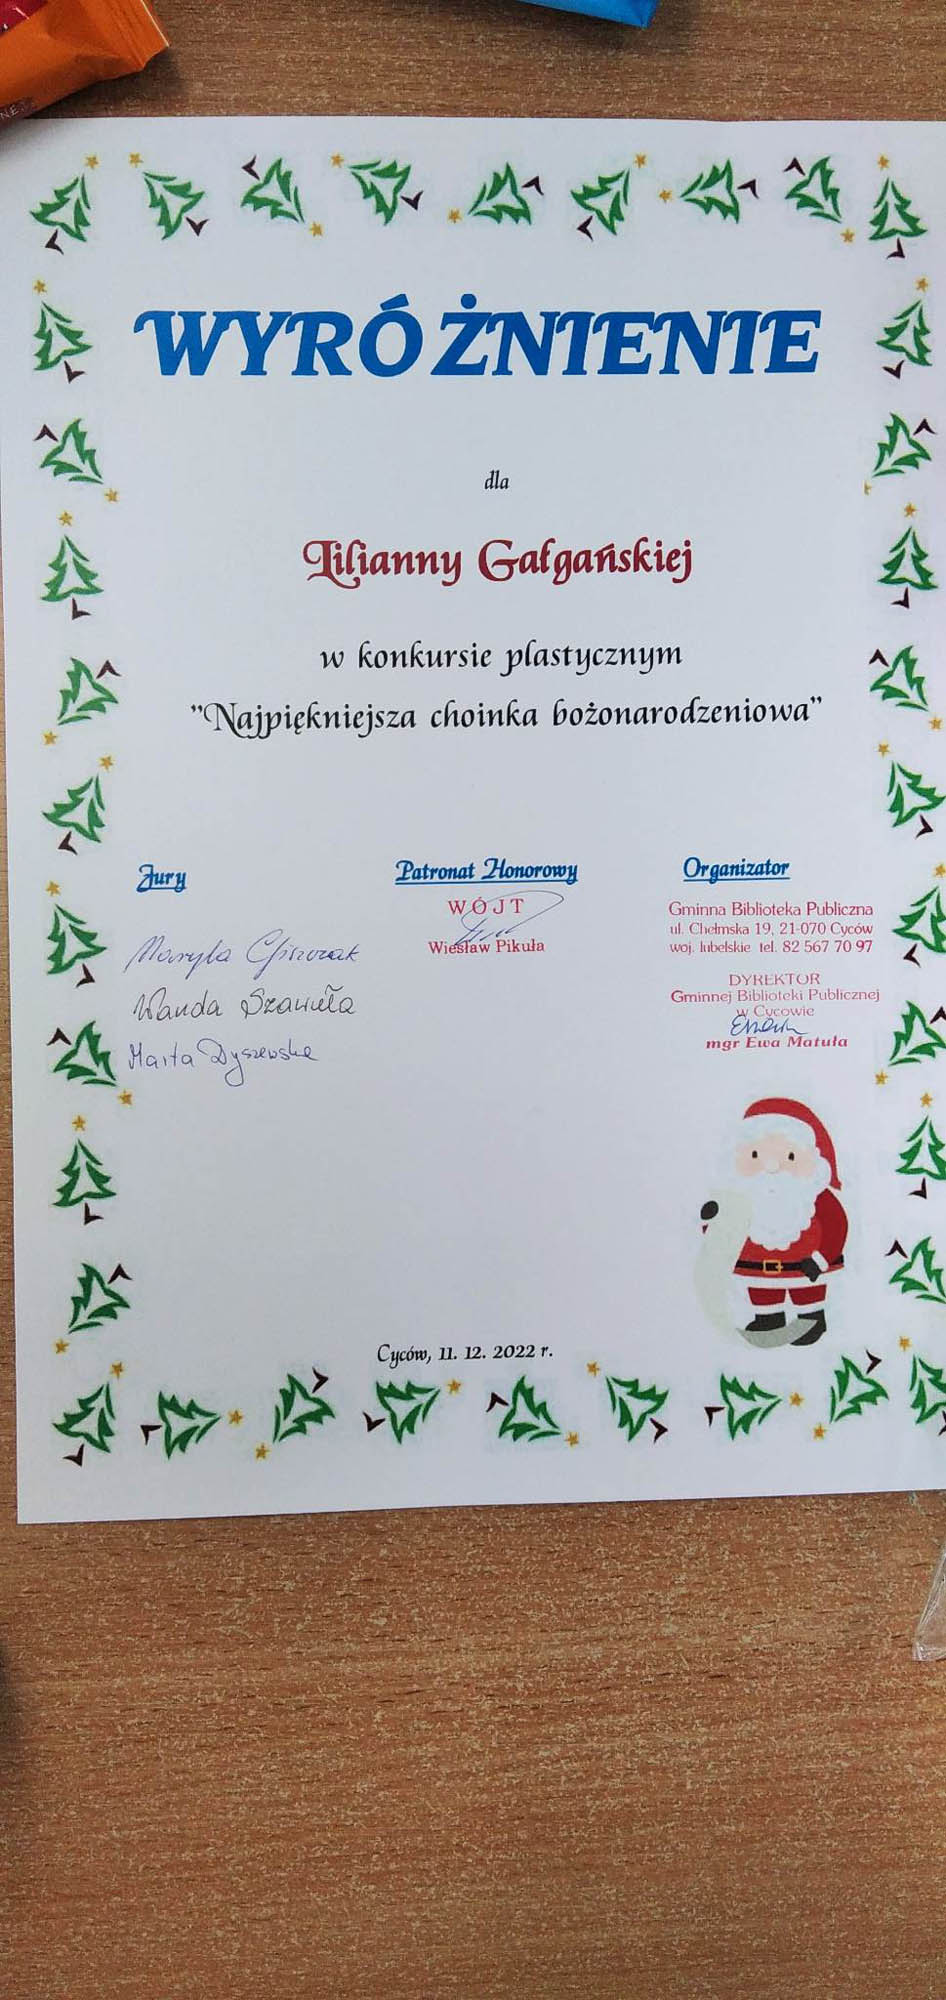 WYRÓŻNIENIE
dla
Lilianny Gałgańskiej
w konkursie plastycznym
"Najpiękniejsza choinka bożonarodzeniowa"
Jury
Maryla
Wanda Szawuła
Marta Dyszewska
Patronat Honorowy
WÓJT
Wiesław Pikuła
Organizator
Gminna Biblioteka Publiczna
ul. Chełmska 19, 21-070 Cyców
woj. lubelskie tel. 82 567 70 97
DYREKTOR
Gminnej Biblioteki Publicznej
w Cycowie
mgr Ewa Matuła
Cyców, 11. 12. 2022 r.